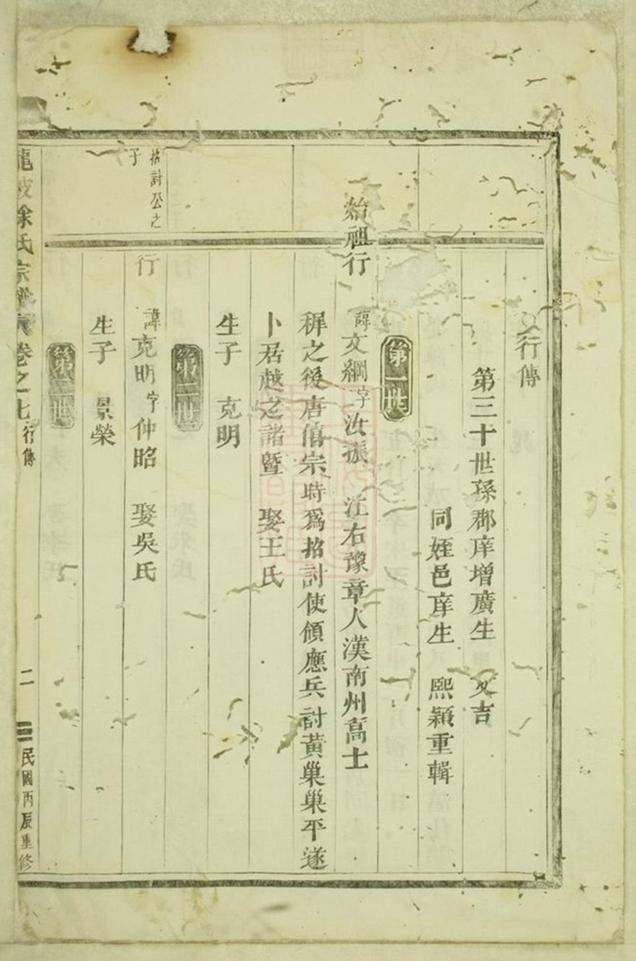 行傳
第三十世孫郡庠增廣生 吉
同姪邑庠生 熙穎重輯
第一世
始祖行 諱文綱字汝振 江右豫章人漢南州高士
穉之後唐僖宗時爲招討使領應兵討黃巢巢平遂
卜居越之諸暨 娶王氏
生子 克明
第二世
招討公之子
行 諱克明字仲昭 娶吳氏
生子 景榮
第三世
徐氏宗譜 卷之七 行傳 二 民國丙辰重修